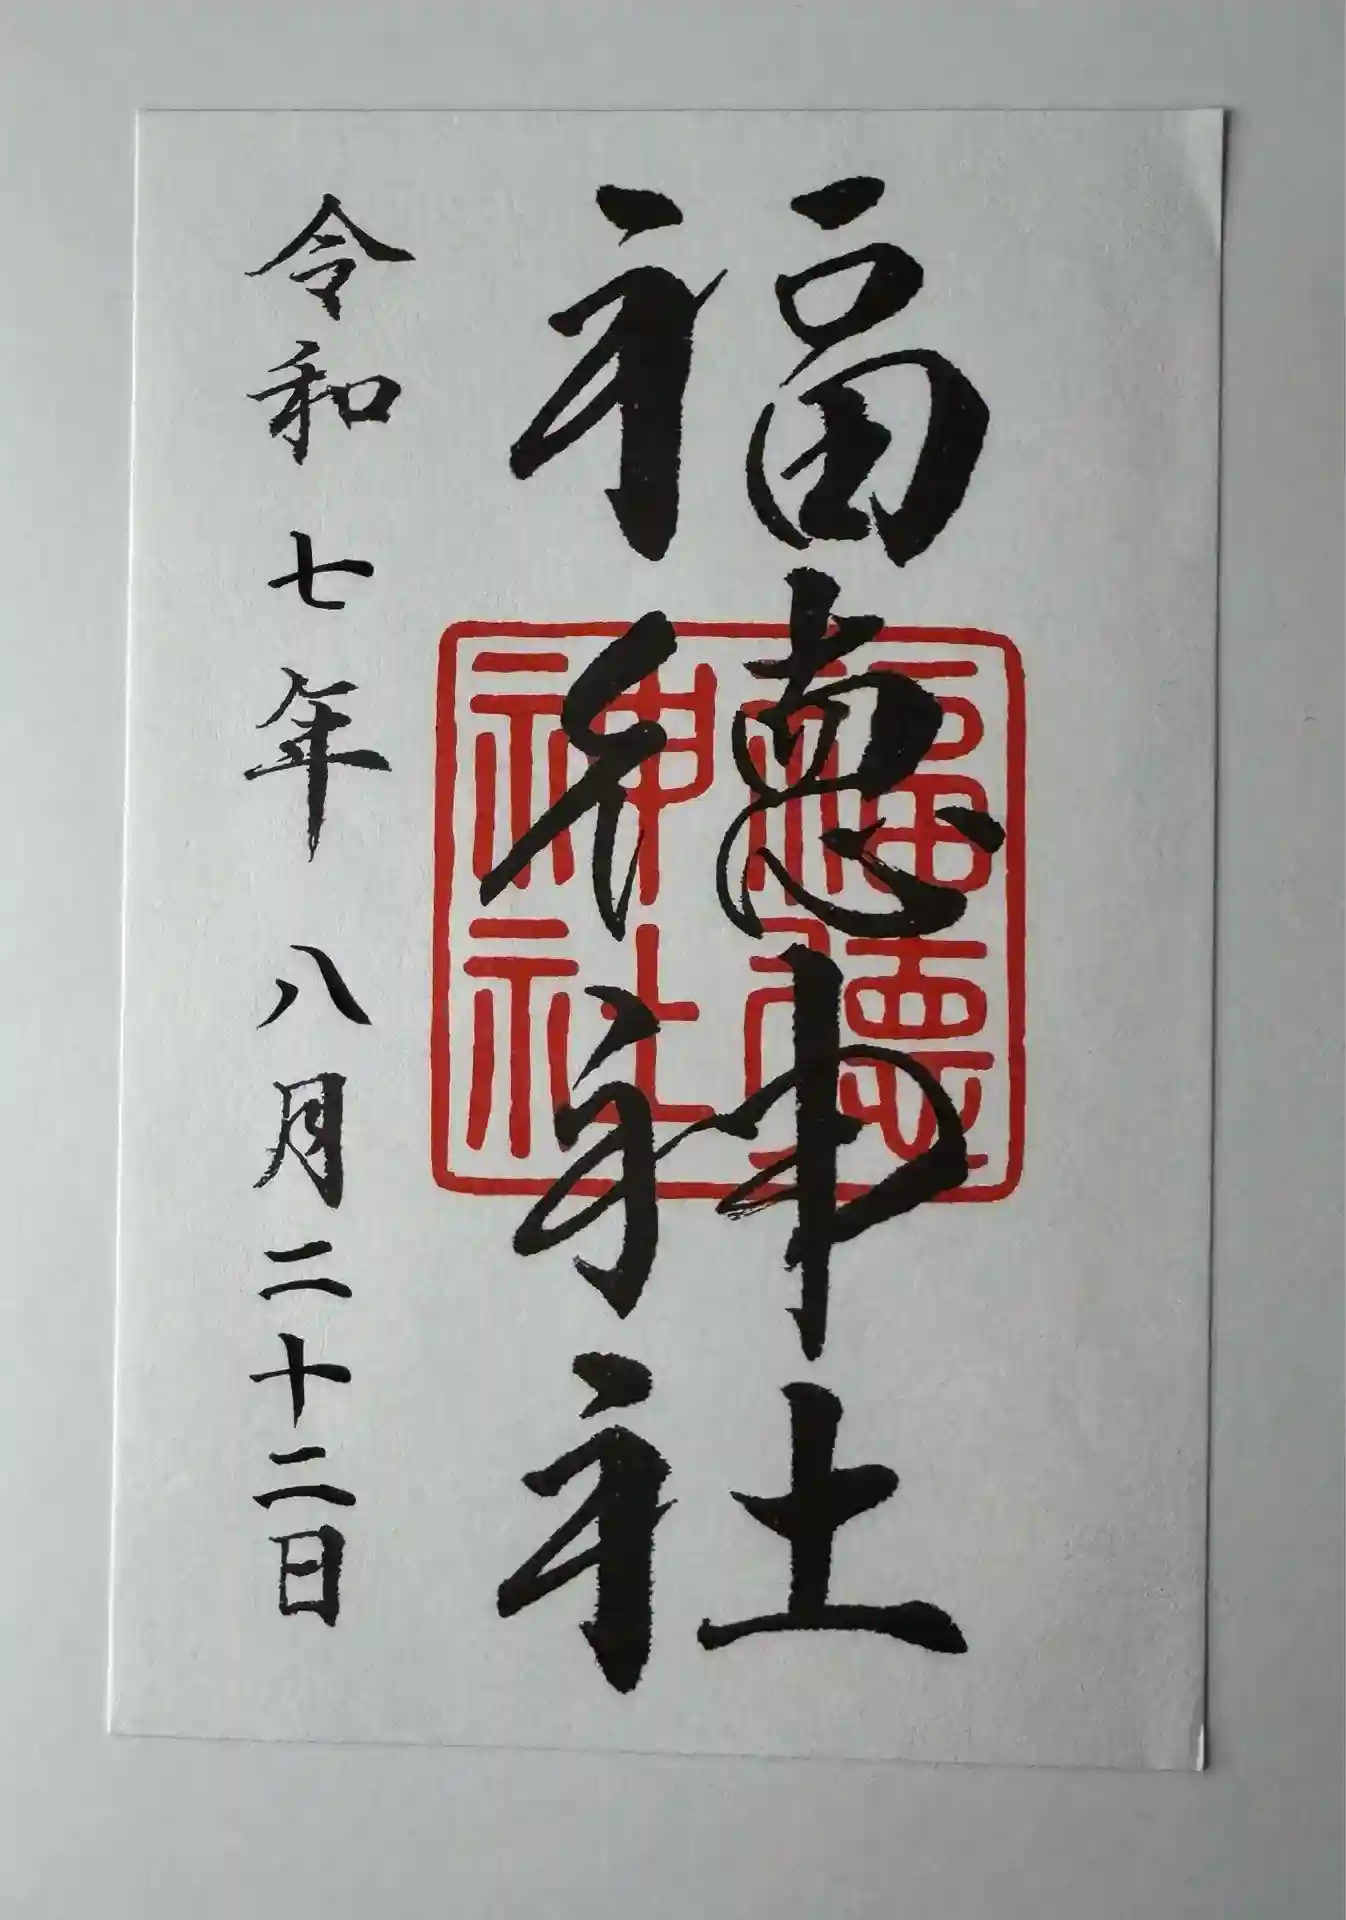 福徳神社
福徳神社
令和七年八月二十二日